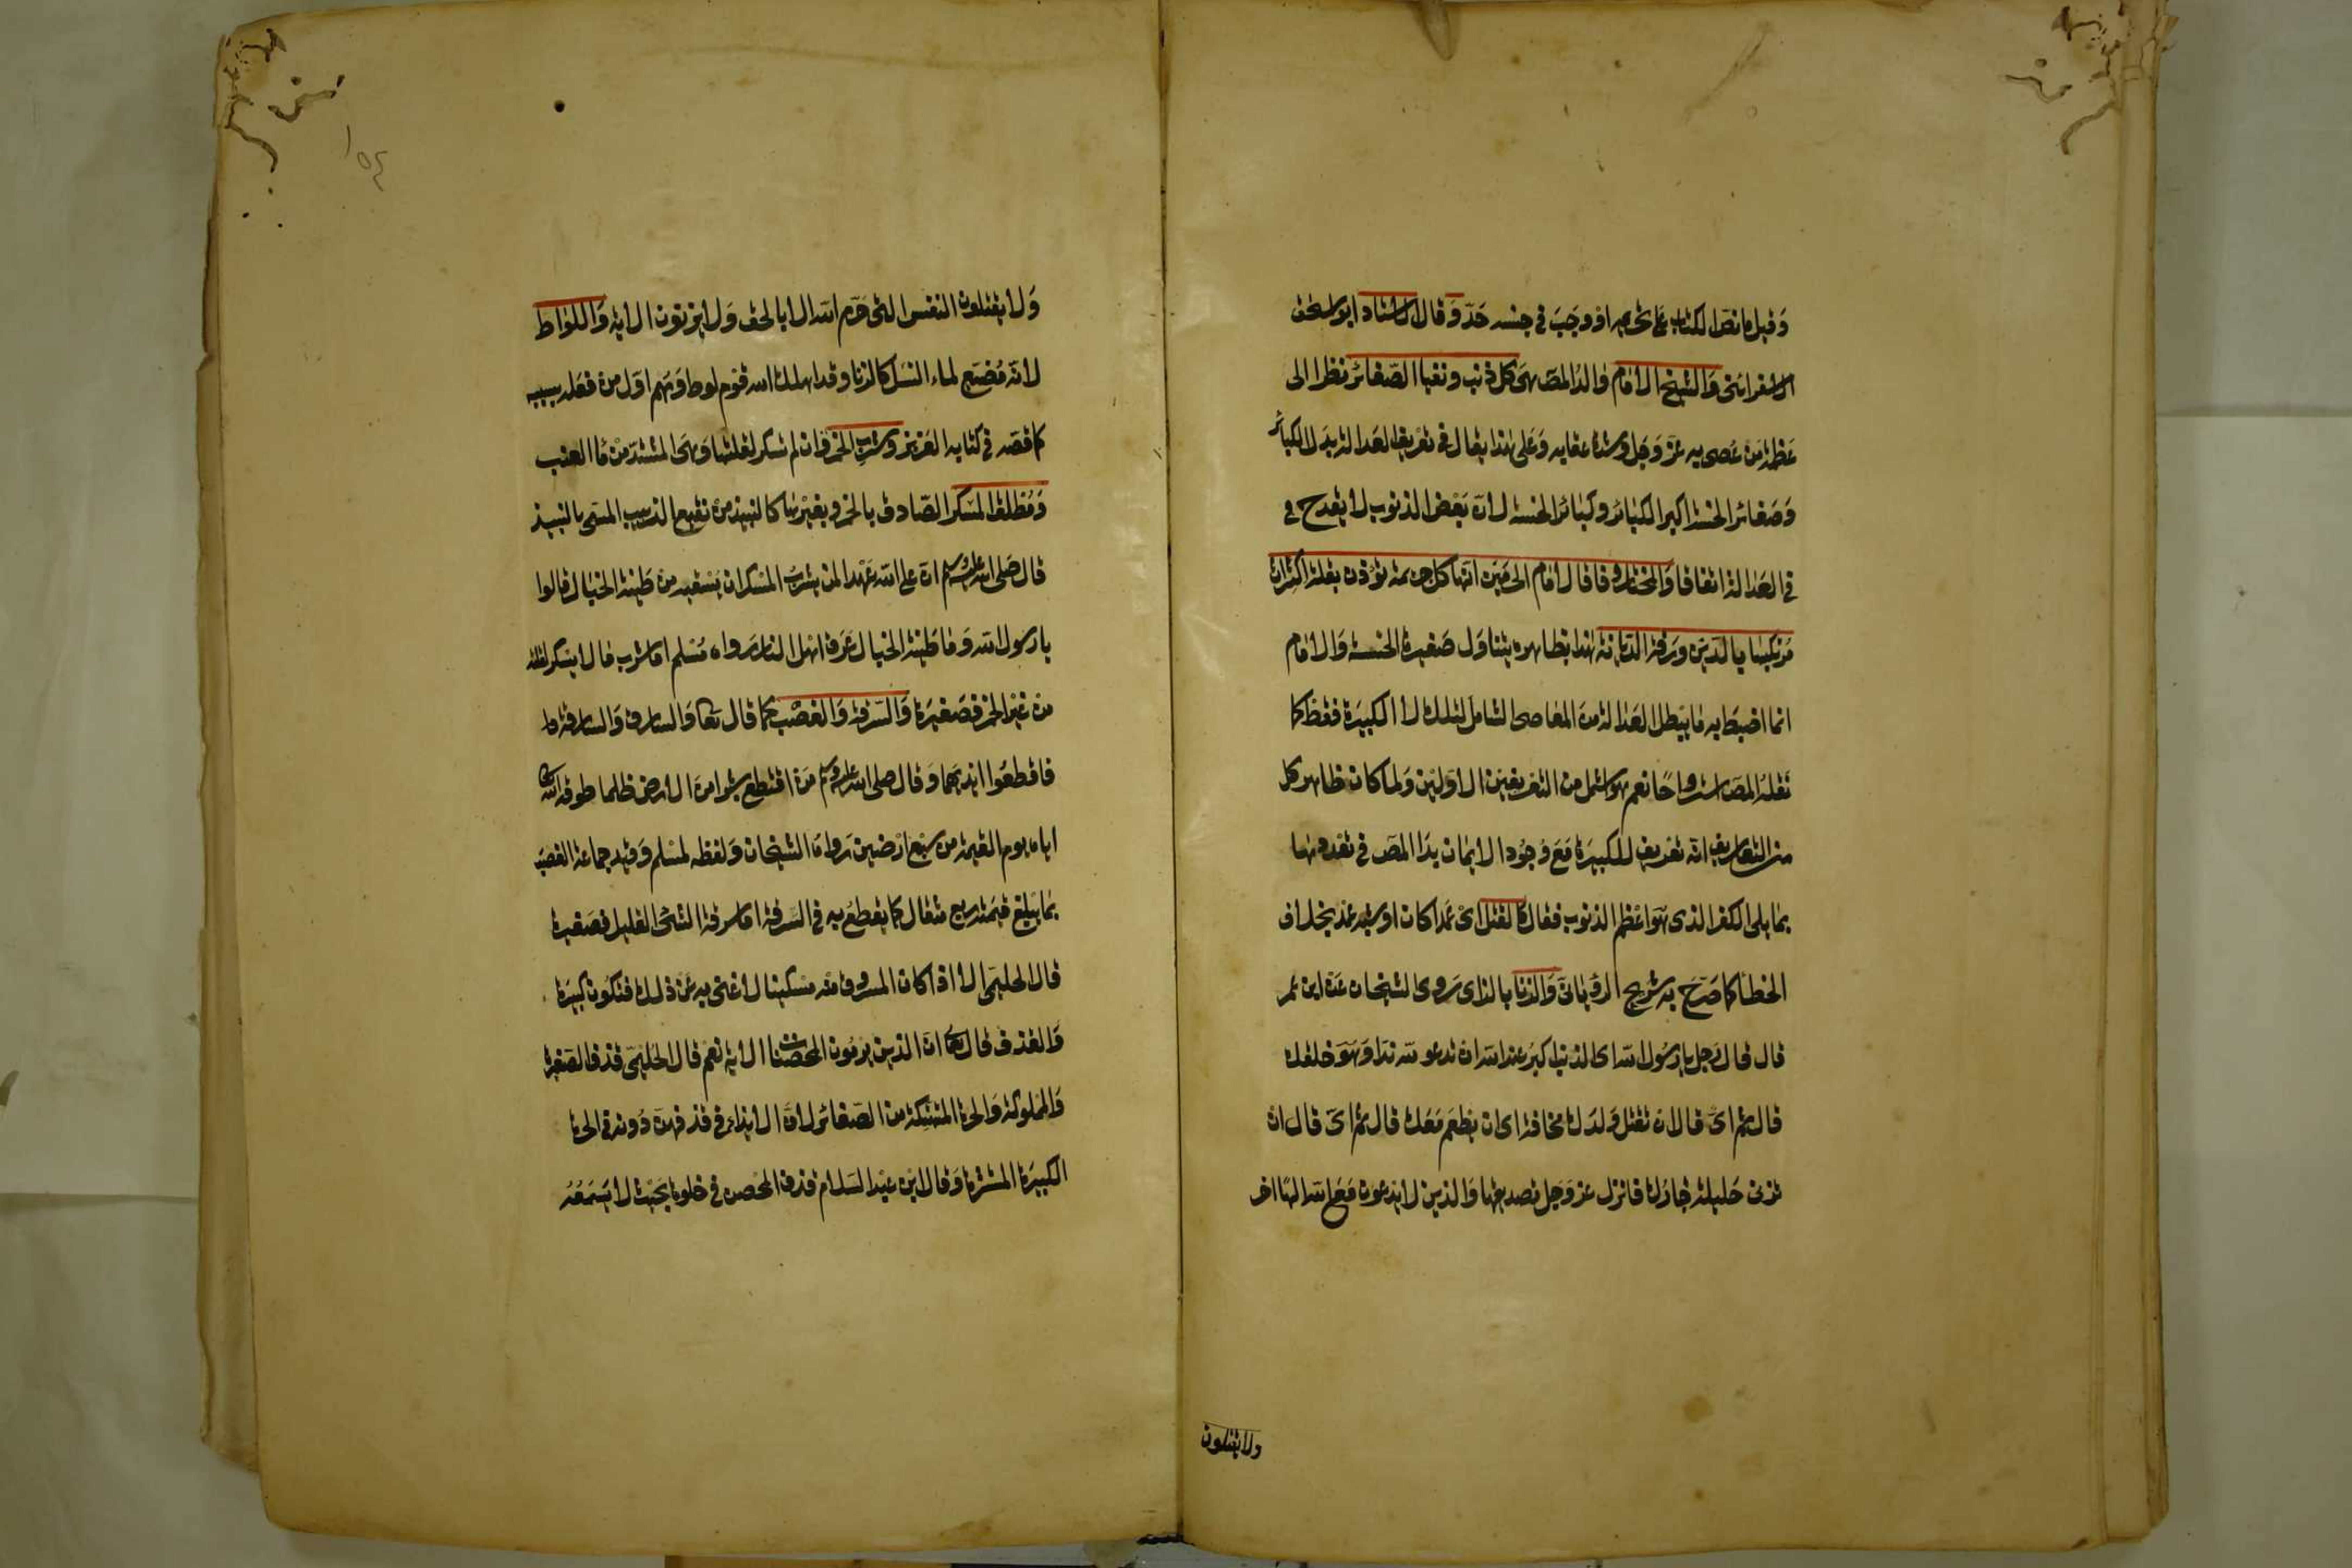 وَقيل ما نصّ الكتاب على تحريمه او وجَبَ في جنسه حَدّ وَقال الاستاذ ابو اسحٰق
الاسفرائنى وَالشيخ الامام والدُ المصَ هىَ كل ذنب ونفيا الصّغائرَ نظرا الى
عَظمة مَن عَصى به عَزّ وَجَل وشدة عقابه وَعَلى هٰذا يقال فى تعْريف العَدالة بدَل الكبائر
وَصَغائر الخسة اكبر الكبَائر وكبَائر الخسة لانّ بَعْض الذنوب لا يقدح في
في العَدالة اتفاقا وَالمختار وفاقا لامَام الحرمَين انّها كل جريمة تؤذن بقلة اكتراث
مُرتكبهَا بالدّين وَرقة الدّيانة هٰذا بظاهره يتناوَل صَغيرة الخسة وَالامَام
انما اضبطَ به مَا يبْطل العَدالة منَ المعَاصى الشامل لتلك لا الكبيرَة فقط كما
نَقلهُ المصَ استرواحًا نعم هو اشمل من التعريفين الاوّلين وَلما كان ظاهر كل
من التعاريف انّه تعريف للكبيرَة مَعَ وُجوُد الايمَان بدَا المصَ في تعدِيدهَا
بما يلى الكفر الذى هوَ اعْظم الذنوب فقال كالقتل اىْ عَمدا كان او شبه عمد بخلاف
الخطأ كما صَرّح به شريح الرويانىّ وَالزنا بالزاى رَوى الشيخان عَن ابن عمر
قال قال رَجل يا رَسُول الله اى الذنب اكبرُ عند الله ان تدعو لله ندا وَهوَ خلقك
قال ثم اىّ قال ان تقتل وَلدَك مخافة اى ان يطعم مَعَك قال ثم اىّ قال ان
تزنى حَليلة جَارك فانزل عز وَجل تصديقها وَالذين لا يدعون مَعَ الله الٰهًا اخر
ولا يقتلون
وَلا يقتلون النفس التى حَرّم الله الا بالحق وَلا يزنون الاية وَاللوَاط
لانّه مُضيّع لماء النسْل كالزنا وَقد اهلك الله قوْم لوط وَهم اوّل من فعَله بسببه
كما قصّه في كتابه العَزيز وشرب الخمر وَان لم تسكر لقلتها وَهىَ المشتدّ منْ مَاء العنب
وَمُطلق المسْكر الصّادق بالخمر وبغيْرهَا كالنبيذ من نقيع الزبيب المسَمى بالنبيذ
قال صَلى الله عليه وسلم انّ على الله عَهْدا لمن يشرَب المسْكر ان يَسْقيه من طينة الخبال قالوا
يا رَسول الله وَمَا طينة الخبال قال عَرَق اهْل النار رَواه مُسْلم امّا شرب مَا لا يسْكر لقلته
من غيْر الخمر فصَغيرَة وَالسّرقة وَالغصْب كما قال تعَا وَالسارق وَالسارقة
فاقطعُوا ايْديَهما وَقال صلى الله عليه وسلم مَن اقتطع شبرا منَ الارض ظلما طوقه الله
اياه يوم القيٰمة من سبْع ارْضين رَوَاهُ الشيخان وَلفظه لمسْلم وَقيّد جماعة الغصبَ
بمَا يبْلغ قيْمته ربع مثقال كما يقطعُ به في السّرقة امّا سرقة الشئ القليل فصَغيرة
قال الحليمىّ الا اذا كان المسروق منه مسْكينا لا غنى به عَنْ ذلك فتكون كبيرَة
وَالقذف قال تعَا انّ الذين يرْمُون المحصنات الاية نعم قال الحَليْمىّ قذف الصّغيرَة
وَالمملوكة وَالحرة المتهتكة من الصّغائر لانّ الايذاء في قذفهنّ دُونه في الحرة
الكبيرَة المستترة وَقال ابن عبْد السَلام قذف المحْصن في خلوة بحَيْث لا يَسْمَعُهُ